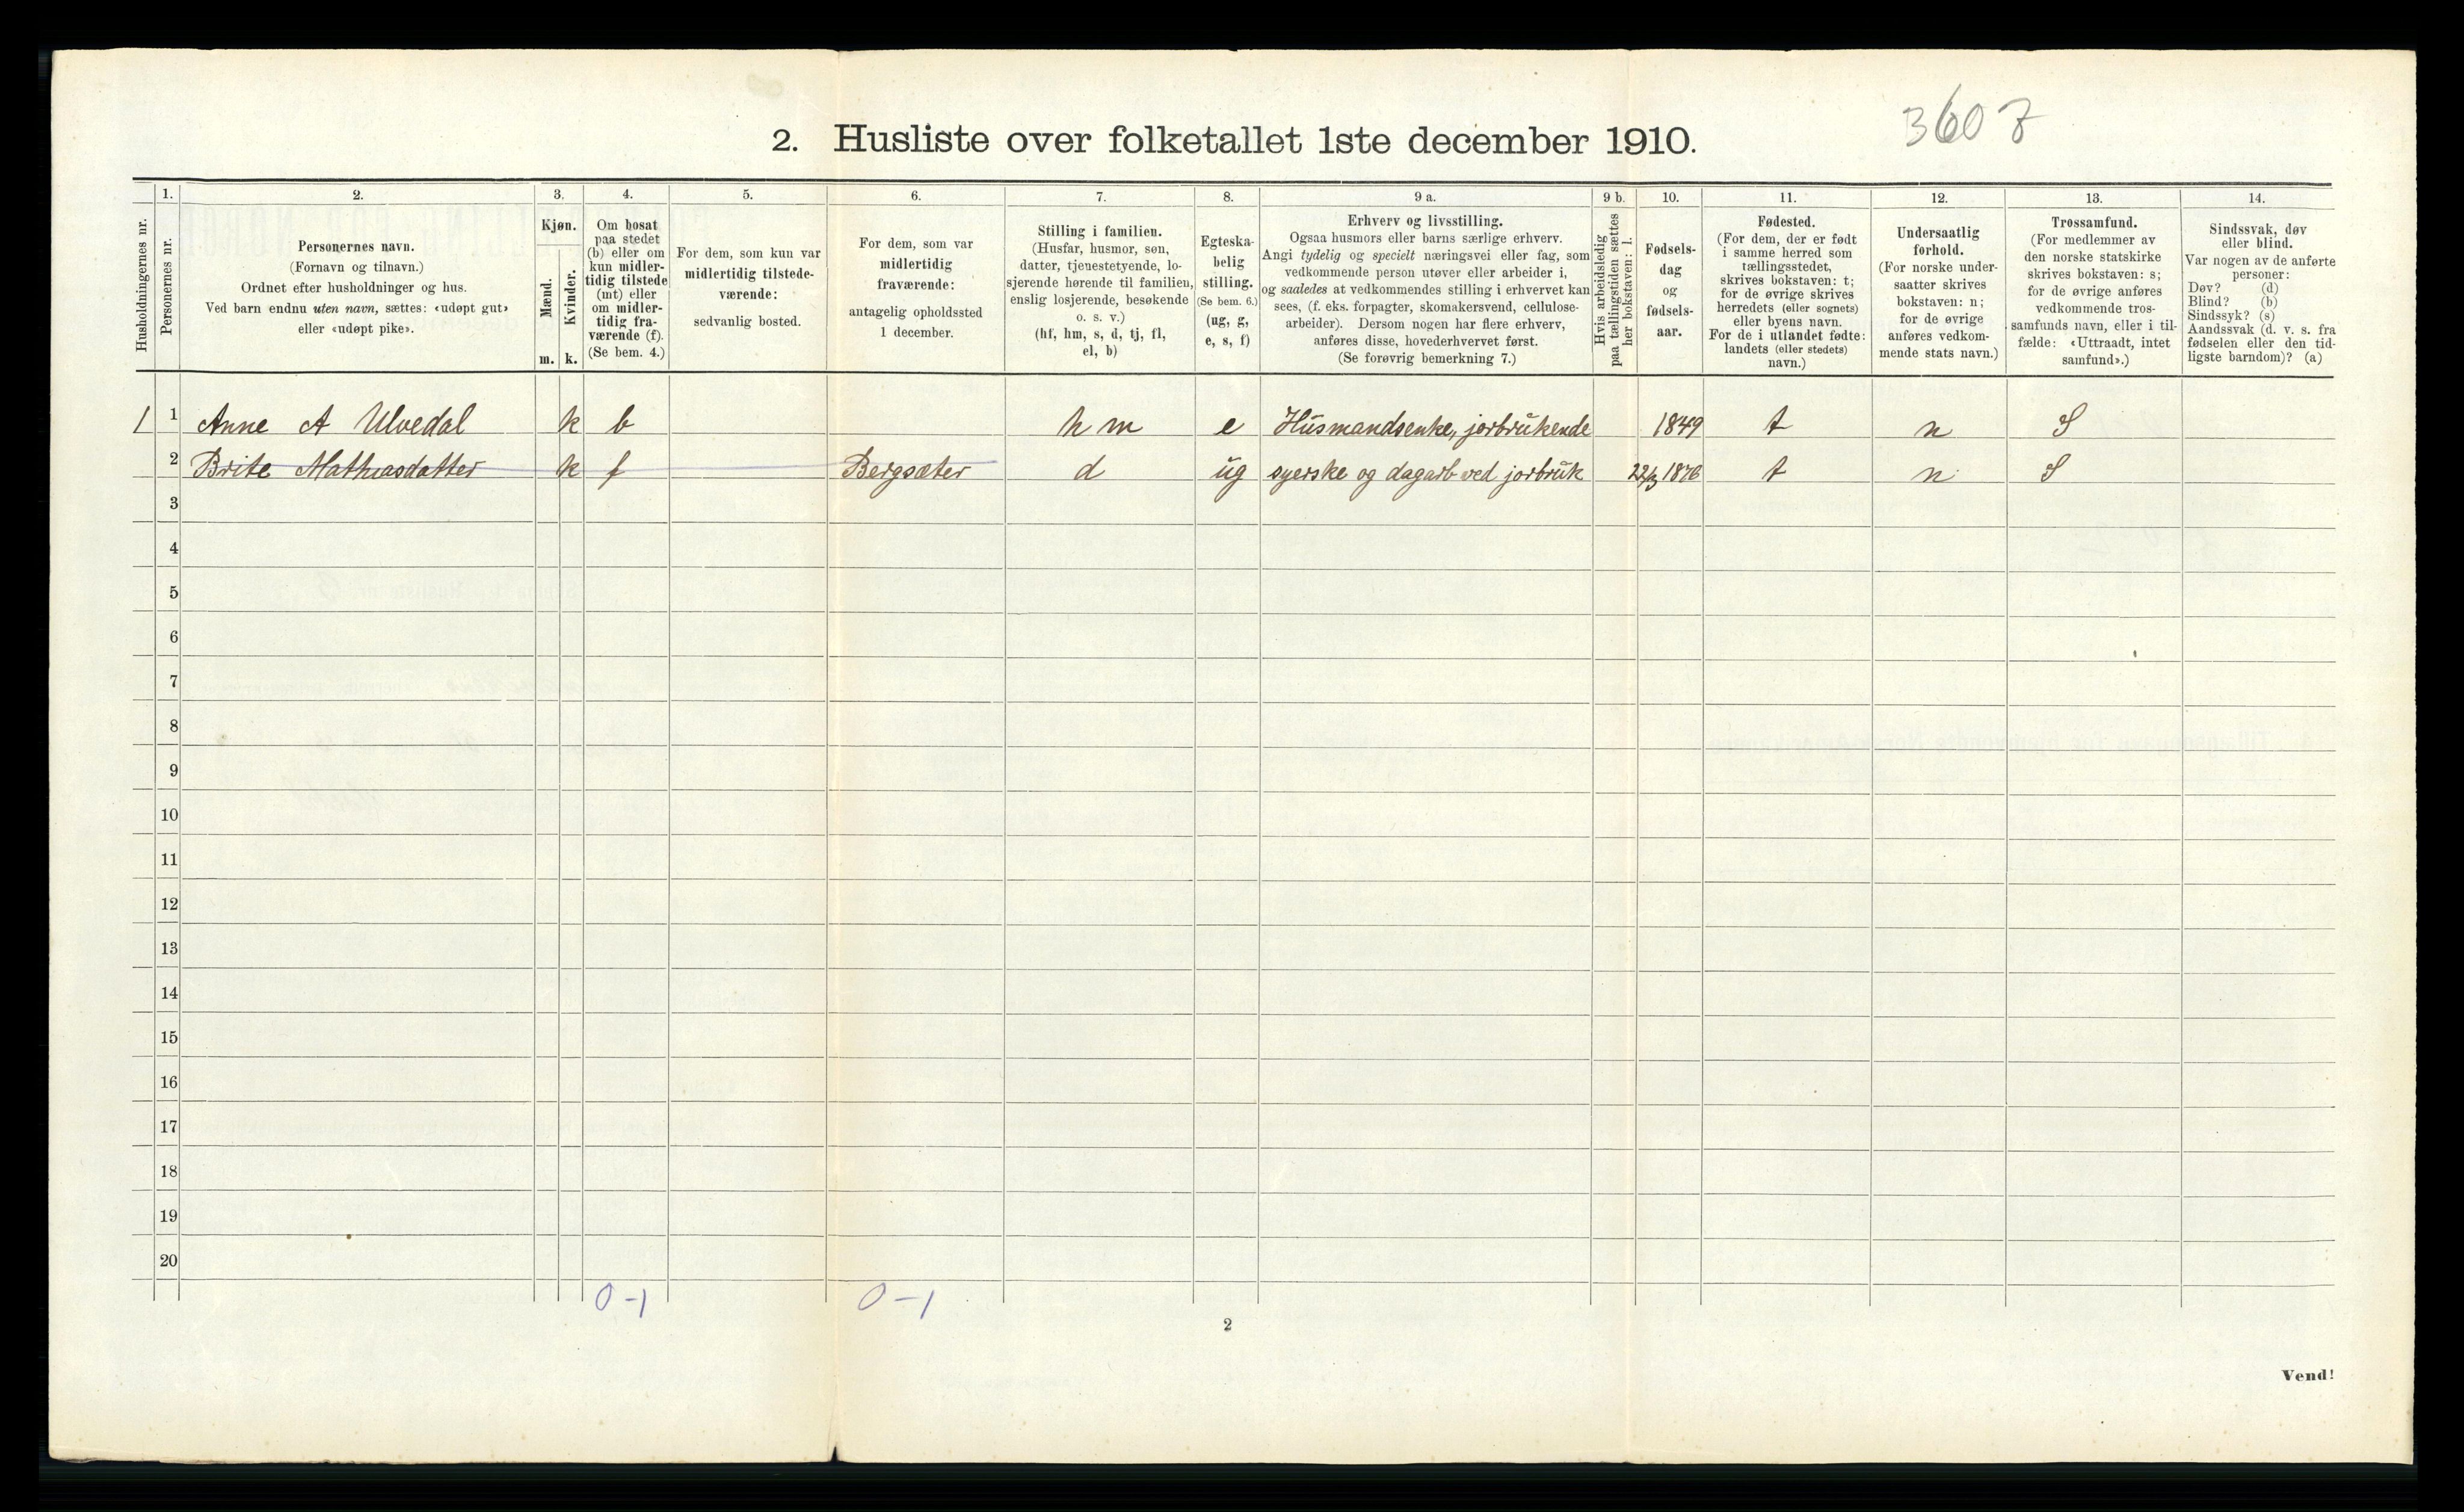 3607
2. Husliste over folketallet 1ste december 1910.
Husholdningernes nr.
1.
Personernes nr.
2.
Personernes navn.
(Fornavn og tilnavn.)
Ordnet efter husholdninger og hus.
Ved barn endnu uten navn, sættes: «udøpt gut»
eller «udøpt pike».
3.
Kjøn.
Mænd.
m.
Kvinder.
k.
4.
Om bosat
paa stedet
(b) eller om
kun midler-
tidig tilstede
(mt) eller
om midler-
tidig fra-
værende (f).
(Se bem. 4.)
5.
For dem, som kun var
midlertidig tilstede-
værende:
sedvanlig bosted.
6.
For dem, som var
midlertidig
fraværende:
antagelig opholdssted
1 december.
7.
Stilling i familien.
(Husfar, husmor, søn,
datter, tjenestetyende, lo-
sjerende hørende til familien,
enslig losjerende, besøkende
o. s. v.)
(hf, hm, s, d, tj, fl,
el, b)
8.
Egteska-
belig
stilling.
(Se bem. 6.)
(ug, g,
e, s, f)
9 a.
Erhverv og livsstilling.
Ogsaa husmors eller barns særlige erhverv.
Angi tydelig og specielt næringsvei eller fag, som
vedkommende person utøver eller arbeider i,
og saaledes at vedkommendes stilling i erhvervet kan
sees, (f. eks. forpagter, skomakersvend, cellulose-
arbeider). Dersom nogen har flere erhverv,
anføres disse, hovederhvervet først.
(Se forøvrig bemerkning 7.)
9 b.
Hvis arbeidsledig
paa tællingstiden sættes
her bokstaven: l.
10.
Fødsels-
dag
og
fødsels-
aar.
11.
Fødested.
(For dem, der er født
i samme herred som
tællingsstedet,
skrives bokstaven: t;
for de øvrige skrives
herredets (eller sognets)
eller byens navn.
For de i utlandet fødte:
landets (eller stedets)
navn.)
12.
Undersaatlig
forhold.
(For norske under-
saatter skrives
bokstaven: n;
for de øvrige
anføres vedkom-
mende stats navn.)
13.
Trossamfund.
(For medlemmer av
den norske statskirke
skrives bokstaven: s;
for de øvrige anføres
vedkommende tros-
samfunds navn, eller i til-
fælde: «Uttraadt, intet
samfund».)
14.
Sindssvak, døv
eller blind.
Var nogen av de anførte
personer:
Døv? (d)
Blind? (b)
Sindssyk? (s)
Aandssvak (d. v. s. fra
fødselen eller den tid-
ligste barndom)? (a)
1 1 Anne A Ulvedal k b hm e Husmandsenke, jorbrukende 1849 t n S
2 Brite Mathiasdatter k f Bergsæter d ug syerske og dagarb ved jorbruk 22/3 1876 t n S
3
4
5
6
7
8
9
10
11
12
13
14
15
16
17
18
19
20
0-1 0-1
2
Vend!